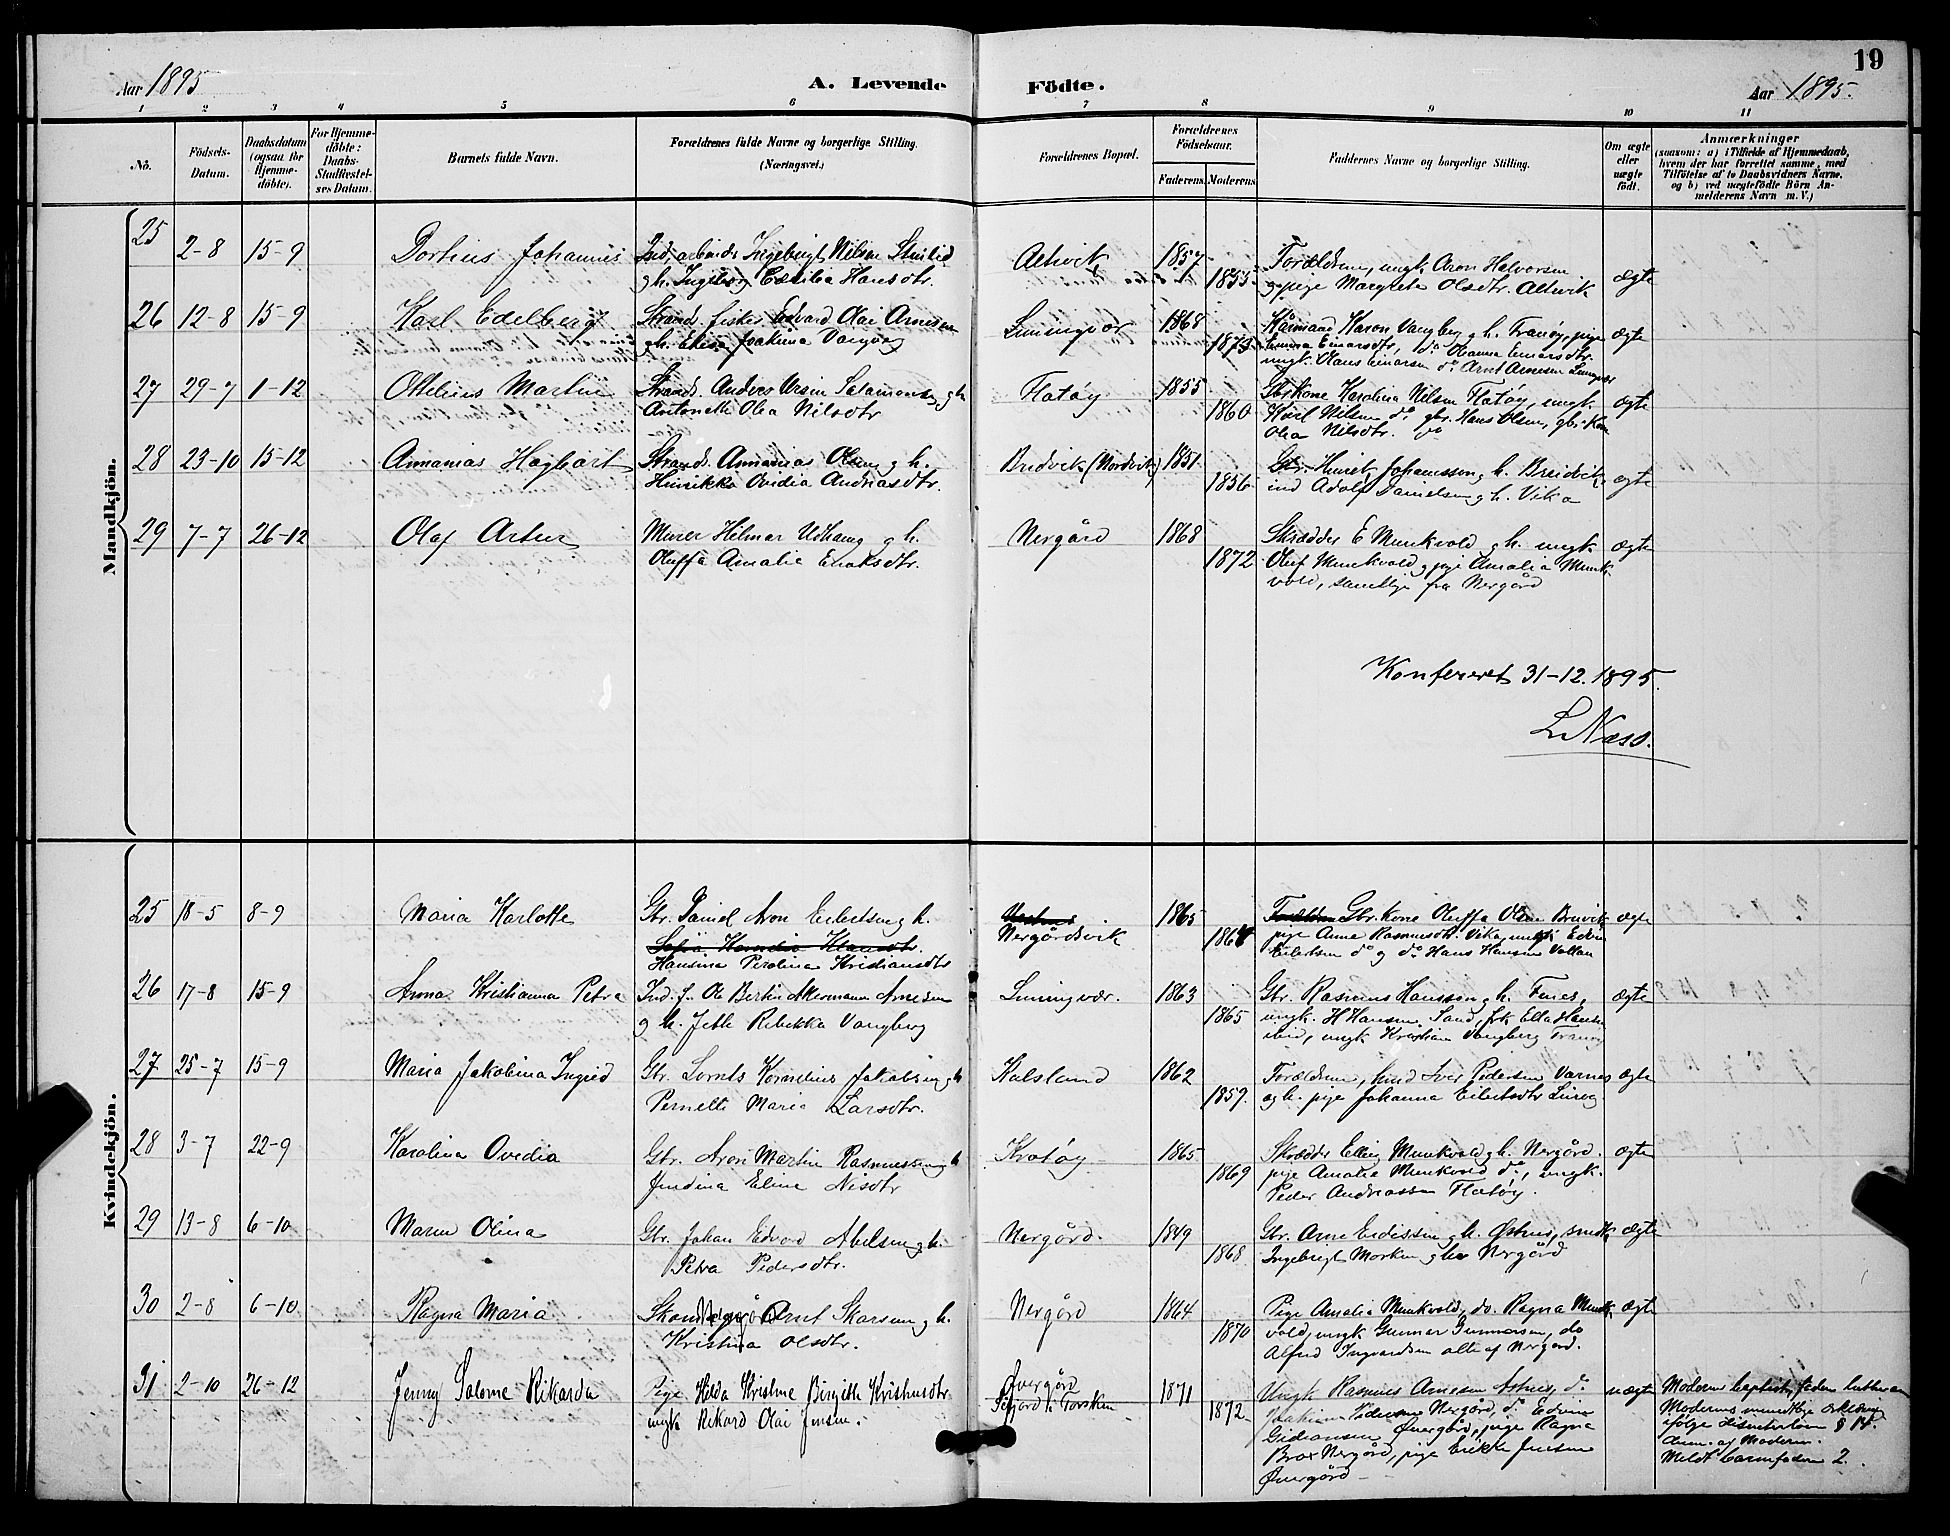 19
Aar 1895
A. Levende Födte.
Aar 1895.
1 2 3 4 5 6 7 8 9 10 11
No.
Födsels-Datum.
Daabsdatum (ogsaa for Hjemme-döbte).
For Hjemme-döbte: Daabs-Stadfæstel-ses Datum.
Barnets fulde Navn.
Forældrenes fulde Navne og borgerlige Stilling. (Næringsvei.)
Forældrenes Bopæl.
Forældrenes Födselsaar.
Faderens. Moderens.
Faddernes Navne og borgerlige Stilling.
Om ægte eller uægte födt.
Anmærkninger
(saasom: a) i Tilfælde af Hjemmedaab,
hvem der har forrettet samme, med
Tilföielse af to Daabsvidners Navne,
og b) ved uægtefödte Börn An-
melderens Navn m. V.)
Mandkjön.
25 2-8 15-9 Dortius Johannes
Ind, arbeider Ingebrigt Nilsen
g h. Ingeborg Cæcilia Hansdtr.
1857 1855
Forældrene, ungk. Aron Halvorsen
g pige Margreta Olsdtr.
ægte
26 12-8 15-9 Karl Edelberg
Strands. fisker Edvard Olai Arnesen
g h. Elise Joakima Vangberg
Lemmingvær 1868 1873
Haron Vangberg g h. Tranøy, pige
Emma Einarsdtr, do Olianna Einarsdtr.
ungk. Hans Einarsen do Arnt Arnesen
ægte
27 29-7 1-12 Ottelius Martin
Strands. Anders Ursin Salamonsen g h
Antonette Olea Nilsdtr
Flatøy 1855 1860
Gbrkone Karolina Nilsen Flatøy, ungk.
Karl Nilsen do gbr. Hans Olsen, gbr. Kone
Olea Nilsdtr. do
ægte
28 23-10 15-12 Annanias Hagbart
Strands. Annanias Olsen g h.
Henrikka Ovidia Andreasdtr.
Bredvik (Nordvik) 1851 1856
Gbr. Henrik Johannessen g h. Breidvik,
ind Adolf Danielsen g h. Vika
ægte
29 7-7 26-12 Olaf Artur
Murer Hilmar Udhaug g h.
Oluffa Amalie Enoksdtr.
Nergård 1868 1872
Skrædder E Munkvold g h. ungk
Oluf Munkvold g pige Amalia Munk-
vold, samtlige fra Nergård
ægte
Konfereret 31-12.1895.
L Næss.
Kvindekjön.
25 18-5 8-9 Maria Karlotte
Gbr. Daniel Aron Eilertsen g h.
Hansina Perolina Kristiansdtr
Nergårdsvik 1865
Gbr. kone Oluffa Olsen
pige Anna Rasmusdtr. Vika, ungk Edvin
Eilertsen do g do Hans Hansen Vollan
ægte
26 17-8 15-9 Anna Kristianna Petra
Ind. f. Ole Bertin Akermann Arnesen
g h. Jette Rebekka Vangberg
Lemingvær. 1863 1865
Gbr. Rasmus Hanssen g h. Fines,
ungk. H Hansen, Sand, frk Ella Hansen
ibid, ungk Kristian Vangberg Tranøy
ægte
27 25-7 15-9 Maria Jakobina Ingrid
Gbr. Lornts Kornelius Jakobsen g h
Pernelle Maria Larsdtr.
Kalsland 1862 1859.
Forældrene, Iver Pedersen Varnes
og h. pige Johanna Eilertsdtr
ægte
28 3-7 22-9 Karolina Ovedia
Gbr. Aron Martin Rasmussen g h
Jendina Eline Nisdtr
Kratøy 1865 1869
Skrædder Elling Munkvold g h. Nergård.
pige Amalia Munkvold do, ungk.
Peder Andreassen Flatøy.
ægte
29 13-8 6-10 Maren Olina
Gbr. Johan Edvard Abelsen g h.
Petra Pedersdtr.
Nergård. 1849 1868
Gbr. Arne Eidissen g h. Østnes, smed
Ingebrigt Morken g hu Nergård
ægte
30 2-8 6-10 Ragna Maria
Arnt Skarsen g h.
Kristina Olsdtr.
Nergård 1864 1870
Pige Amalia Munkvold, do. Ragna Munk-
vold, ungk Gunnar Gunnarsen, do
Alfred Ingvardsen alle af Nergård.
ægte
31 2-10 26-12 Jenny Salome Rikarda
Pige Hilda Kristine Birgitte Kristensdtr
ungk Rikard Olai Jensen.
Øvergård
1871 1872
Ungk Rasmus Arnesen Astnes, do
Joakim Pedersen Nergård, do Edvin
Gideonsen Øvergård, pige Ragna
Brox Nergård, pige Erikke Jensen
Øvergård
uægte
Moderen baptist, faderen lutheraner
Moderens mundtlige erklæring
ifølge disenterloven § 14.
Anm. af Moderen.
Meldt barnefaderen 2.